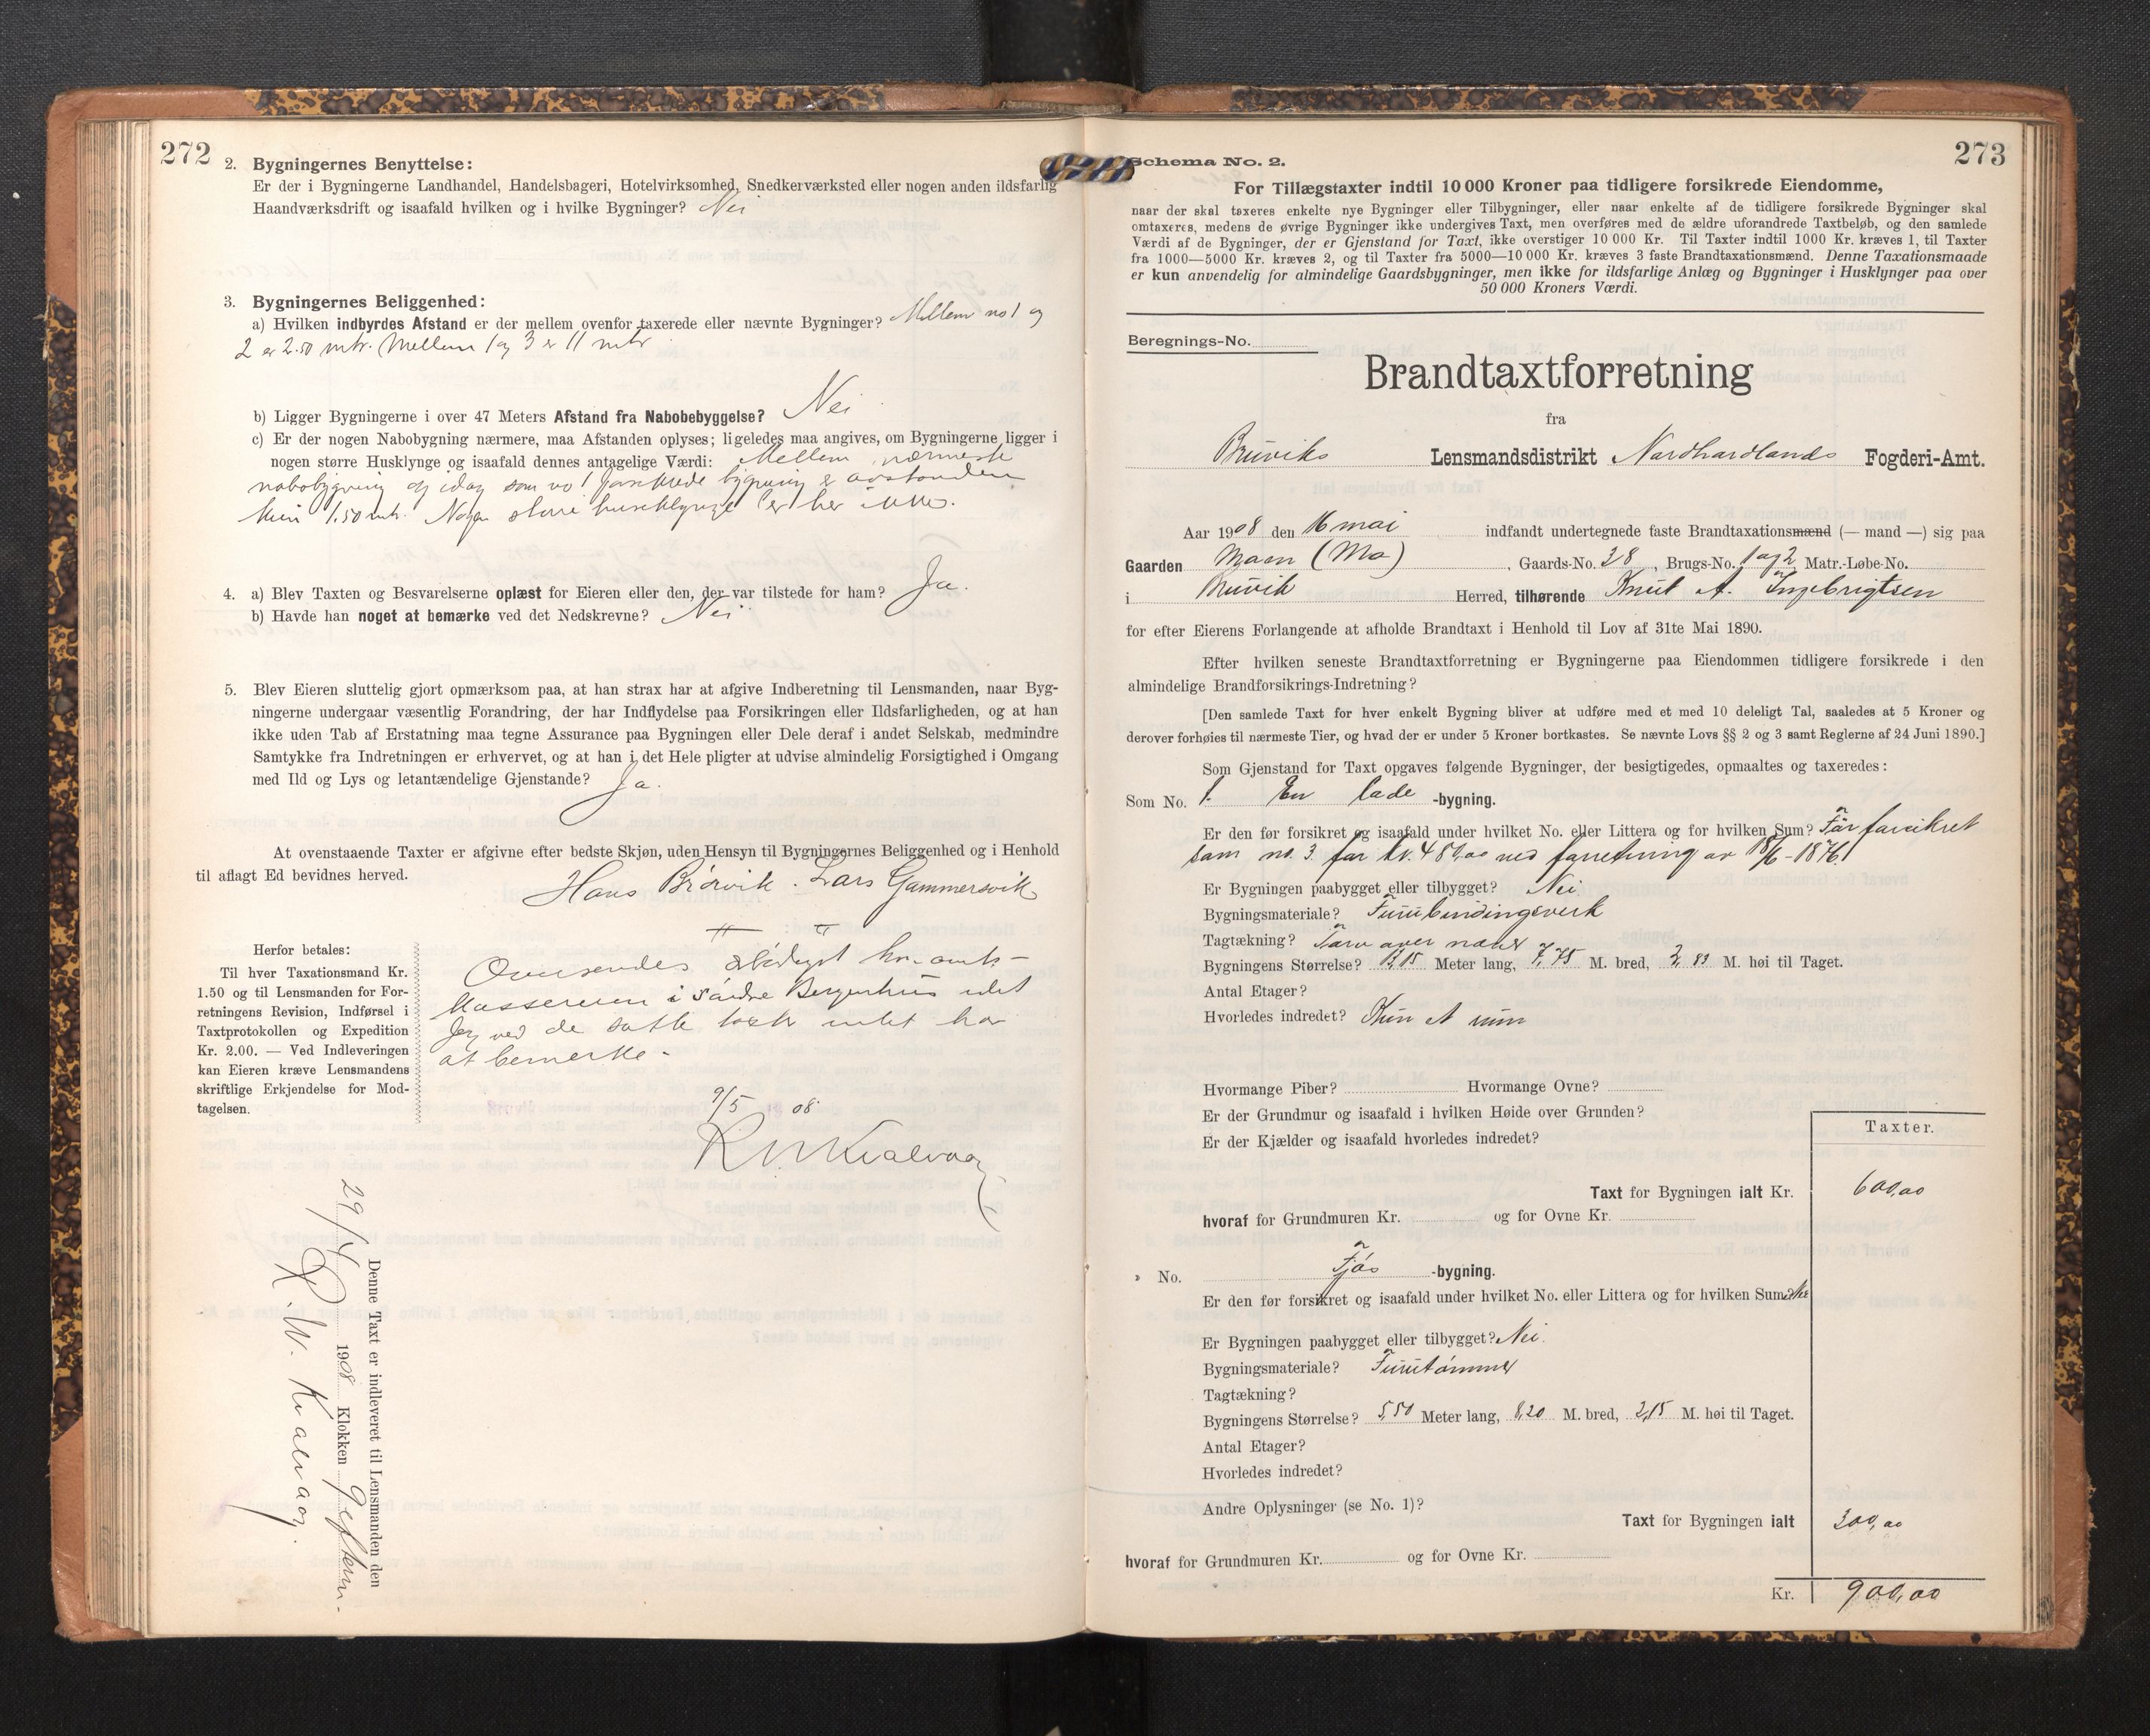 272
2. Bygningernes Benyttelse:
Er der i Bygningerne Landhandel, Handelsbageri, Hotelvirksomhed, Snedkerværksted eller nogen anden ildsfarlig
Haandværksdrift og isaafald hvilken og i hvilke Bygninger? Nei
3. Bygningernes Beliggenhed:
a) Hvilken indbyrdes Afstand er der mellem ovenfor taxerede eller nævnte Bygninger? Mellem no 1 og
2 er 2.50 mtr. Mellem 1 og 3 er 11 mtr
b) Ligger Bygningerne i over 47 Meters Afstand fra Nabobebyggelse? Nei
c) Er der nogen Nabobygning nærmere, maa Afstanden oplyses; ligeledes maa angives, om Bygningerne ligger i
nogen større Husklynge og isaafald dennes antagelige Værdi: Mellem nærmeste
nabobygning og idag som no 1 forsikrede bygning er avstanden
kun 1.50 mtr. Nogen større husklynge er her ikke.
4. a) Blev Taxten og Besvarelserne oplæst for Eieren eller den, der var tilstede for ham? Ja.
b) Havde han noget at bemærke ved det Nedskrevne? Nei
5. Blev Eieren sluttelig gjort opmærksom paa, at han strax har at afgive Indberetning til Lensmanden, naar Byg-
ningerne undergaar væsentlig Forandring, der har Indflydelse paa Forsikringen eller Ildsfarligheden, og at han
ikke uden Tab af Erstatning maa tegne Assurance paa Bygningen eller Dele deraf i andet Selskab, medmindre
Samtykke fra Indretningen er erhvervet, og at han i det Hele pligter at udvise almindelig Forsigtighed i Omgang
med Ild og Lys og letantændelige Gjenstande? Ja.
At ovenstaaende Taxter er afgivne efter bedste Skjøn, uden Hensyn til Bygningernes Beliggenhed og i Henhold
til aflagt Ed bevidnes herved.
Hans Brørvik. Lars Gammersvik
Herfor betales:
Til hver Taxationsmand Kr.
1.50 og til Lensmanden for For-
retningens Revision, Indførsel i
Taxtprotokollen og Expedition
Kr. 2.00. — Ved Indleveringen
kan Eieren kræve Lensmandens
skriftlige Erkjendelse for Mod-
tagelsen.
Oversendes ærbødigst hr. amts-
kassereren i søndre Bergenhus idet
jeg ved de satte taxter intet har
at bemerke.
9/5 08
R W Kvalvaag
Denne Taxt er indleveret til Lensmanden den
29/4 1908 Klokken 9 eftern.
R. W. Kvalvaag.
273
Schema No. 2.
For Tillægstaxter indtil 10 000 Kroner paa tidligere forsikrede Eiendomme,
naar der skal taxeres enkelte nye Bygninger eller Tilbygninger, eller naar enkelte af de tidligere forsikrede Bygninger skal
omtaxeres, medens de øvrige Bygninger ikke undergives Taxt, men overføres med de ældre uforandrede Taxtbeløb, og den samlede
Værdi af de Bygninger, der er Gjenstand for Taxt, ikke overstiger 10 000 Kr. Til Taxter indtil 1000 Kr. kræves 1, til Taxter
fra 1000—5000 Kr. kræves 2, og til Taxter fra 5000—10 000 Kr. kræves 3 faste Brandtaxationsmænd. Denne Taxationsmaade
er kun anvendelig for almindelige Gaardsbygninger, men ikke for ildsfarlige Anlæg og Bygninger i Husklynger paa over
50 000 Kroners Værdi.
Beregnings-No.
Brandtaxtforretning
fra
Bruviks Lensmandsdistrikt Nordhordlands Fogderi-Amt.
Aar 1908 den 16 mai indfandt undertegnede faste Brandtaxationsmænd (— mand —) sig paa
Gaarden Moen (Mo), Gaards-No. 38, Brugs-No. 1 og 2 Matr.-Løbe-No.
i Bruvik Herred, tilhørende Knut A. Ingebrigtsen
for efter Eierens Forlangende at afholde Brandtaxt i Henhold til Lov af 31te Mai 1890.
Efter hvilken seneste Brandtaxtforretning er Bygningerne paa Eiendommen tidligere forsikrede i den
almindelige Brandforsikrings-Indretning?
[Den samlede Taxt for hver enkelt Bygning bliver at udføre med et med 10 deleligt Tal, saaledes at 5 Kroner og
derover forhøies til nærmeste Tier, og hvad der er under 5 Kroner bortkastes. Se nævnte Lovs §§ 2 og 3 samt Reglerne af 24 Juni 1890.]
Som Gjenstand for Taxt opgaves følgende Bygninger, der besigtigedes, opmaaltes og taxeredes:
Som No. 1. En lade -bygning.
Er den før forsikret og isaafald under hvilket No. eller Littera og for hvilken Sum? Før forsikret
som no. 3. for kr. 480,00 ved forretning av 18/6-1876.
Er Bygningen paabygget eller tilbygget? Nei.
Bygningsmateriale? Furubindingsverk
Tagtækning? Torv over næver
Bygningens Størrelse? Meter lang, 7,75 M. bred, 2,83 M. høi til Taget.
Antal Etager?
Hvorledes indredet? Kun et rum
Hvormange Piber? Hvormange Ovne?
Er der Grundmur og isaafald i hvilken Høide over Grunden?
Er der Kjælder og isaafald hvorledes indredet?
Taxter.
Taxt for Bygningen ialt Kr. 600,00
hvoraf for Grundmuren Kr. og for Ovne Kr.
» No. Fjøs -bygning.
Er den før forsikret og isaafald under hvilket No. eller Littera og for hvilken Sum?
Er Bygningen paabygget eller tilbygget? Nei.
Bygningsmateriale? Furutømmer
Tagtækning?
Bygningens Størrelse? 5,50 Meter lang, 8,20 M. bred, 2,15 M. høi til Taget.
Antal Etager?
Hvorledes indredet?
Andre Oplysninger (se No. 1)?
Taxt for Bygningen ialt 300,00
hvoraf for Grundmuren Kr. og for Ovne Kr.
Kr. 900,00